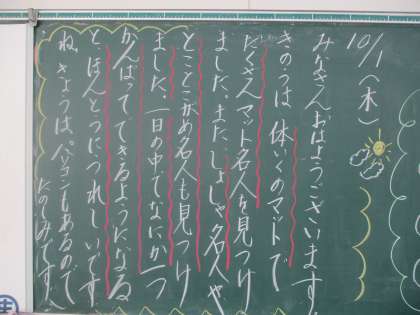 10/1(木)
みなさんおはようございます。
きのうは体いくのマットで
たくさんマット名人を見つけ
ました。また、しょしゃ名人や
とことこがめ名人も見つけ
ました。一日の中でなにか一つ
がんばってできるようになる
と、ほんとうにうれしいです
ね。きょうは、パソコンもあるので
たのしみです。